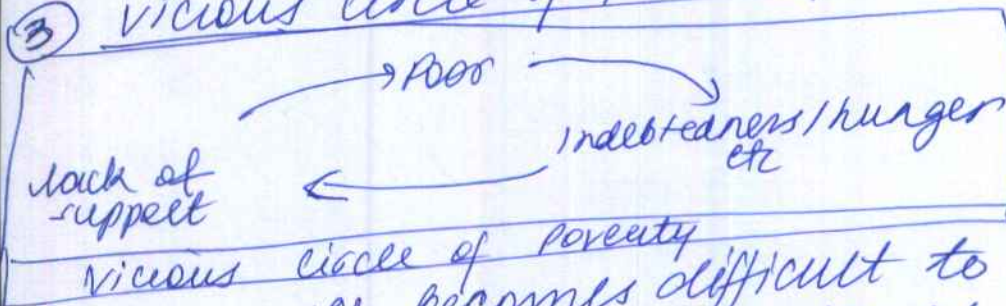 ③ Vicious circle of
Poor
Indebtedness/hunger
etc
lack of
support
Vicious circle of Poverty
becomes difficult to